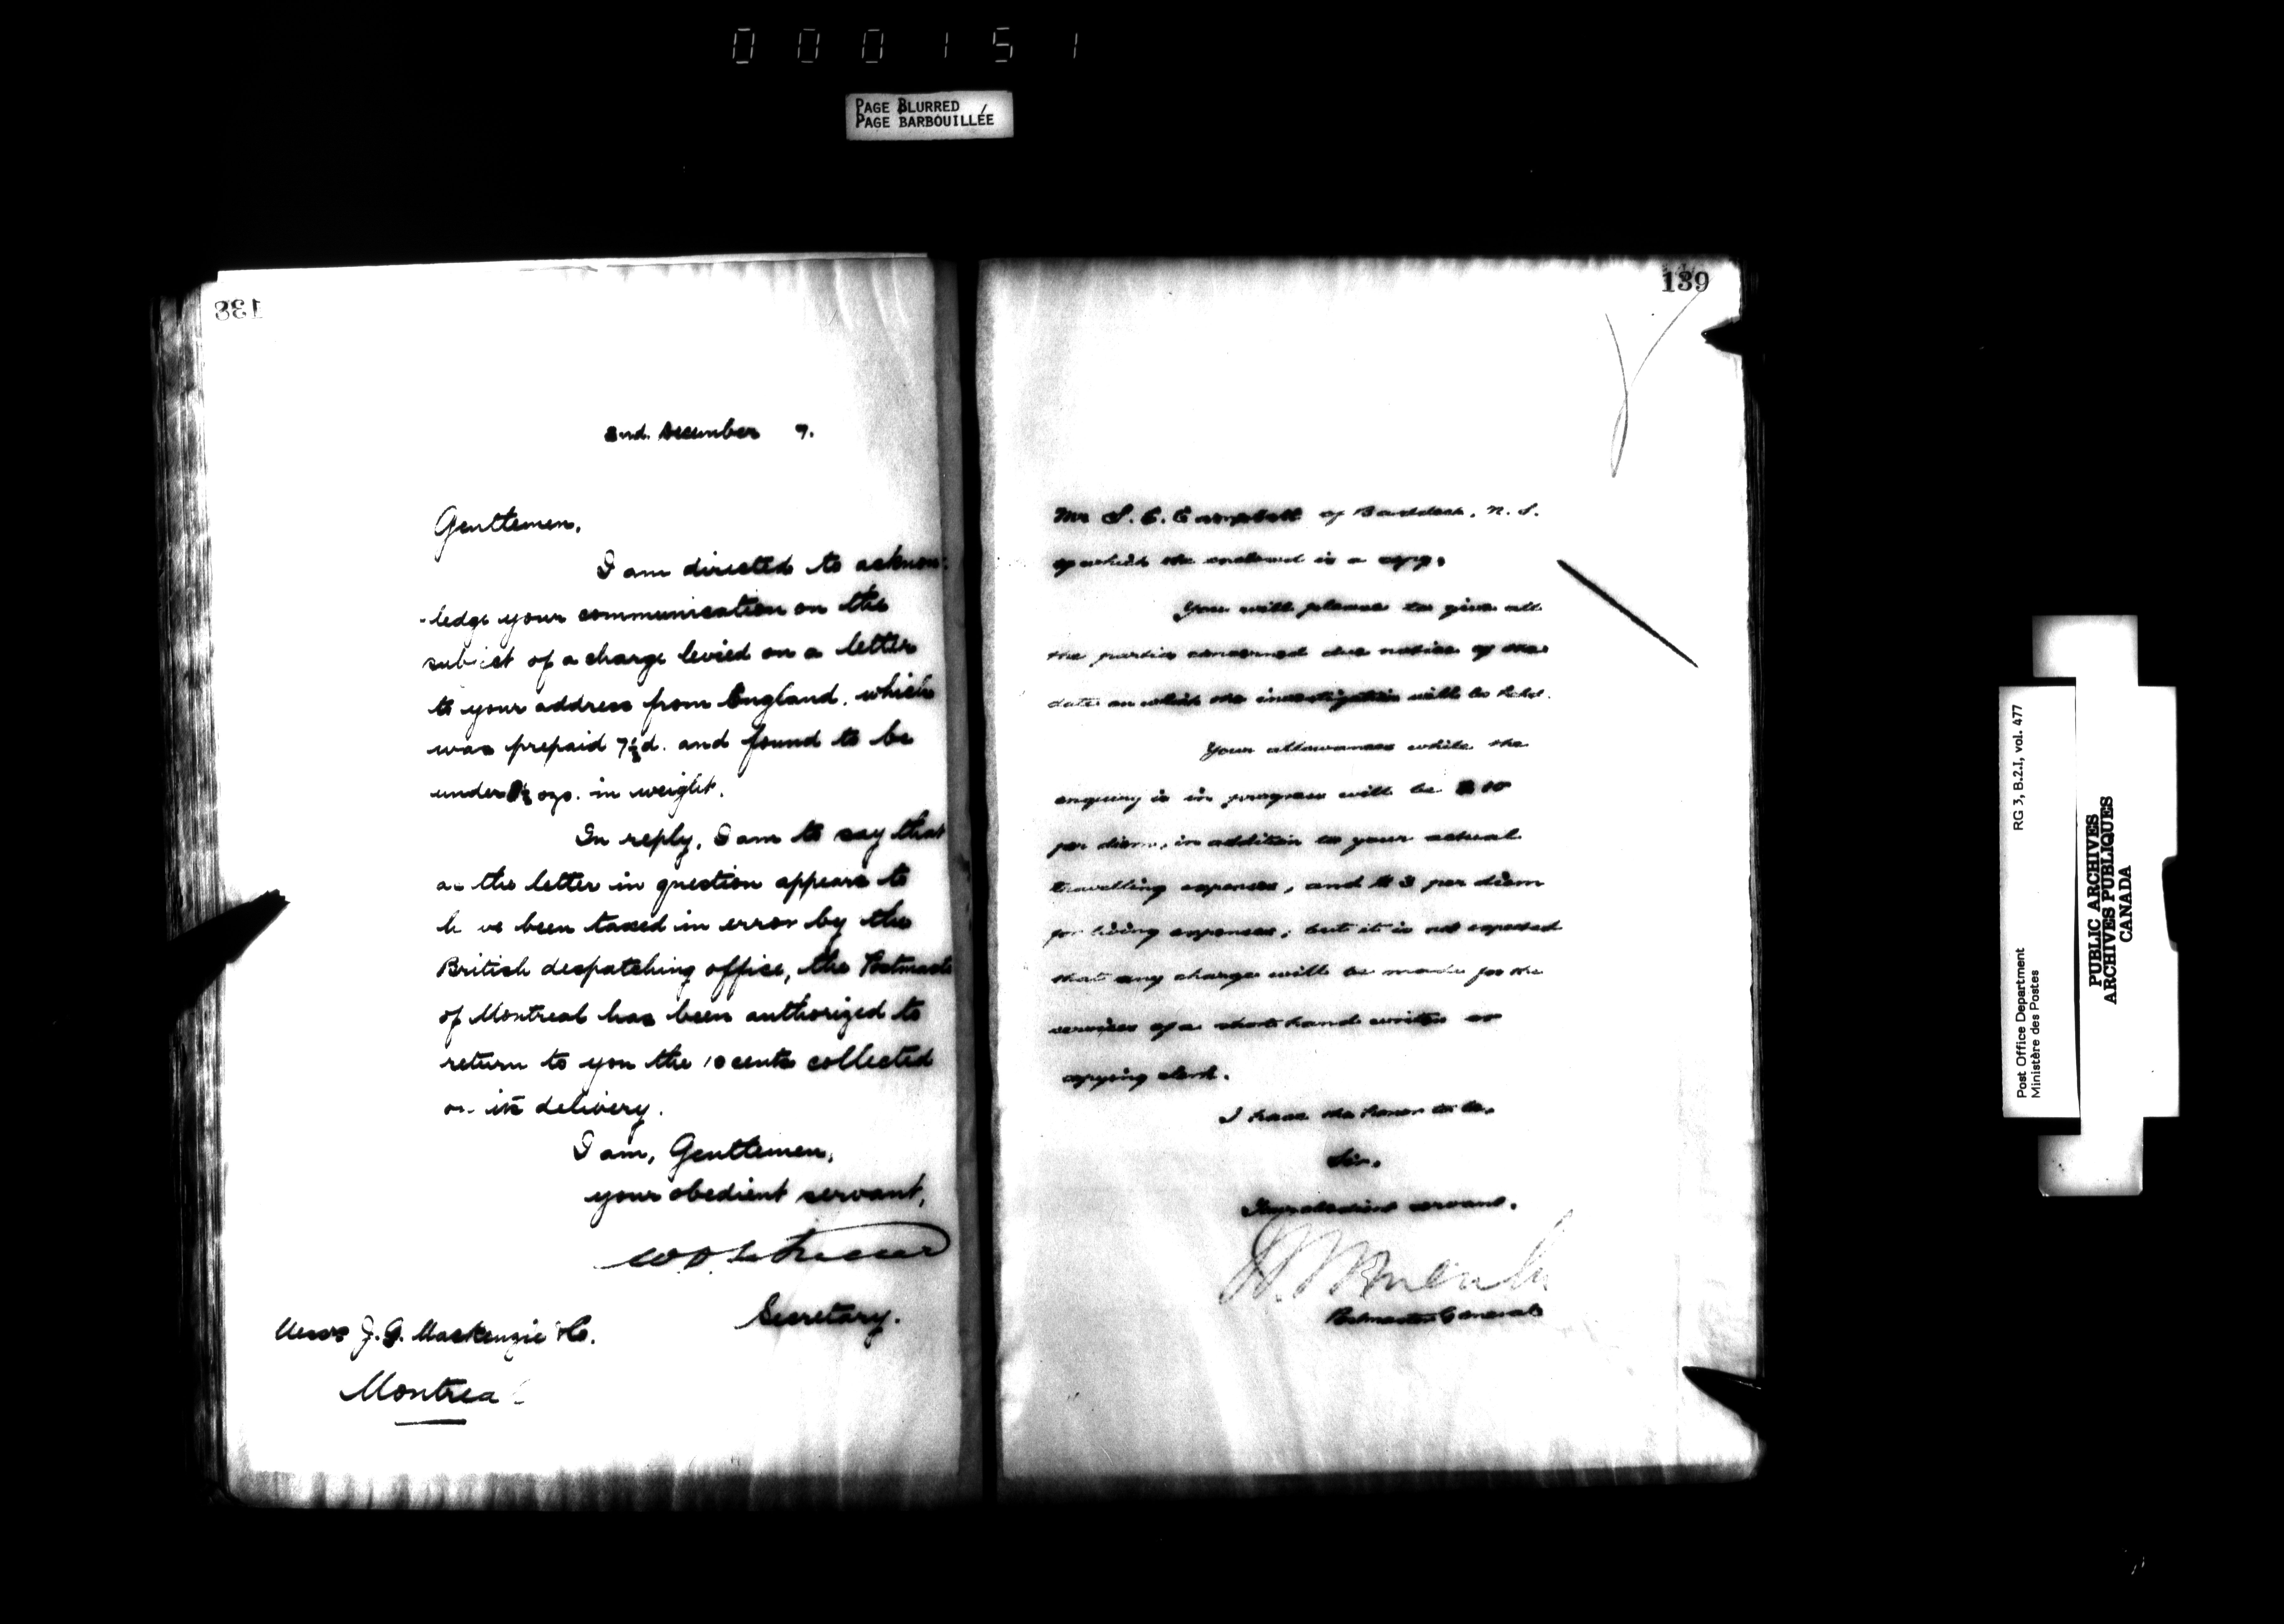 000151
PAGE BLURRED
PAGE BARBOUILLÉE
138
2nd. December 7.
Gentlemen,
I am directed to acknow-
-ledge your communication on the
subject of a charge levied on a letter
to your address from England, which
was prepaid 7½d. and found to be
under ozs. in weight.
In reply, I am to say that
as the letter in question appears to
have been taxed in error by the
British despatching office, the Postmaster
of Montreal has been authorized to
return to you the 10 cents collected
on its delivery.
I am, Gentlemen,
your obedient servant,
Secretary.
Messrs J. G. Mackenzie & Co.
Montreal
139
Mr S. C. Campbell of Baddeck, N. S.
of which the enclosed is a copy.
You will please to give all
the parties concerned due notice of the
date on which the investigation will be held.
Your allowances while the
enquiry is in progress will be $10
per diem, in addition to your actual
travelling expenses, and $3 per diem
for living expenses; but it is not expected
that any charge will be made for the
services of a short hand writer or
copying clerk.
I have the honor to be,
Sir,
Your obedient servant,
Postmaster General
Post Office Department
Ministère des Postes
RG 3, B.2.I, vol. 477
PUBLIC ARCHIVES
ARCHIVES PUBLIQUES
CANADA